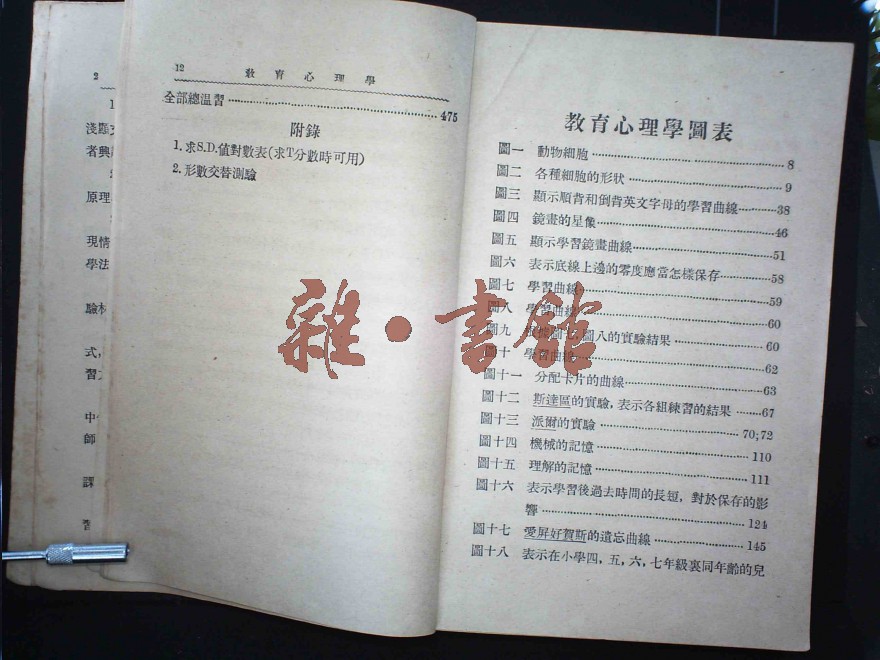 2
淺顯
者興
原理
現情
學法
驗材
式,
習
中
師
課
12 教育心理學
全部總温習 475
附錄
1. 求S.D.值對數表(求T分數時可用)
2. 形數交替測驗
教育心理學圖表
圖一 動物細胞 8
圖二 各種細胞的形狀 9
圖三 顯示順背和倒背英文字母的學習曲線 38
圖四 鏡畫的星像 46
圖五 顯示學習鏡畫曲線 51
圖六 表示底線上邊的零度應當怎樣保存 58
圖七 學習曲線 59
圖八 學習曲線 60
圖九 圖八的實驗結果 60
圖十 學習曲線 62
圖十一 分配卡片的曲線 63
圖十二 斯達區的實驗,表示各組練習的結果 67
圖十三 派爾的實驗 70;72
圖十四 機械的記憶 110
圖十五 理解的記憶 111
圖十六 表示學習後過去時間的長短,對於保存的影
響 124
圖十七 愛屏好賀斯的遺忘曲線 145
圖十八 表示在小學四,五,六,七年級裏同年齡的兒
雜·書館